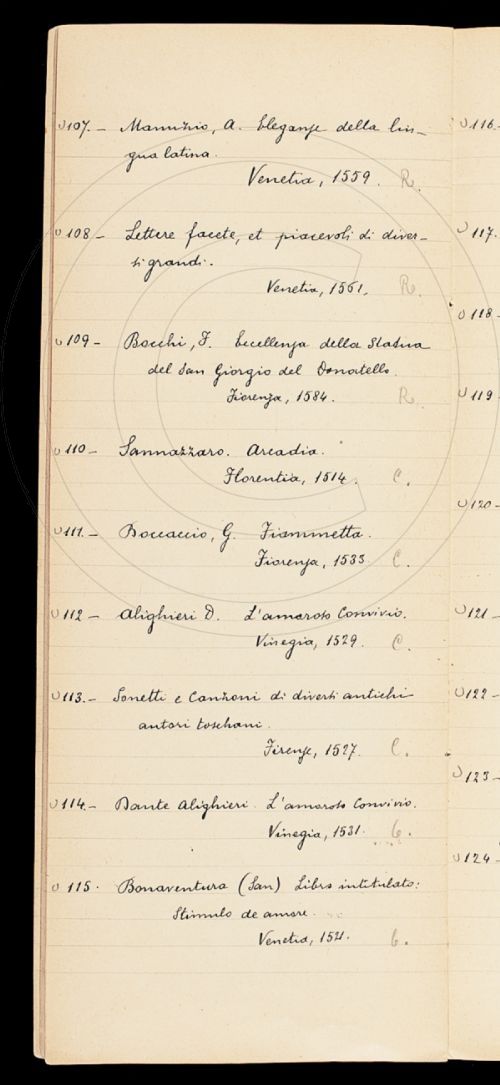 107. - Manuzio, A. Eleganze della lin-
gua latina.
Venetia, 1559. R.
108 - Lettere facete, et piacevoli di diver-
si grandi.
Venetia, 1561. R.
109 - Bocchi, F. Eccellenza della Statua
del San Giorgio del Donatello.
Fiorenza, 1584. R.
110 - Sannazzaro. Arcadia.
Florentia, 1514. C.
111. - Boccaccio, G. Fiammetta.
Fiorenza, 1533. C.
112 - Alighieri D. L'amoroso Convivio.
Vinegia, 1529. C.
113. - Sonetti e Canzoni di diversi antichi
autori toschani.
Firenze, 1527. C.
114. - Dante Alighieri. L'amoroso Convivio.
Vinegia, 1531. C.
115. Bonaventura (San) Libro intitulato:
Stimulo de amore.
Venetia, 1521. C.
116. -
117.
118 -
119
120 -
121 -
122 -
123 -
124 -